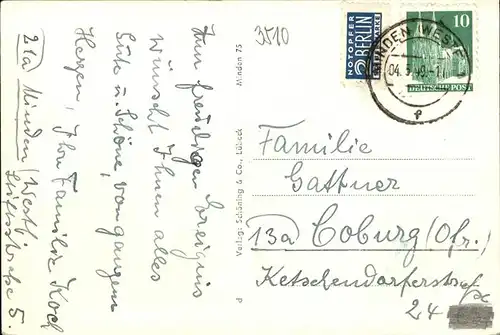 3510
Zum freudigen Ereignis
wünscht Ihnen alles
Gute u. Schöne, von ganzem
Herzen, Ihre Familie Koch
21a Minden / Westf.
5
Minden 52
Verlag: Schöning & Co., Lübeck
P
NOTOPFER
2 BERLIN
STEUERMARKE
10
DEUTSCHE POST
MINDEN (WESTF)
04.
Familie
Gattner
13a Coburg (Ofr.)
Ketschendorferstraße
24